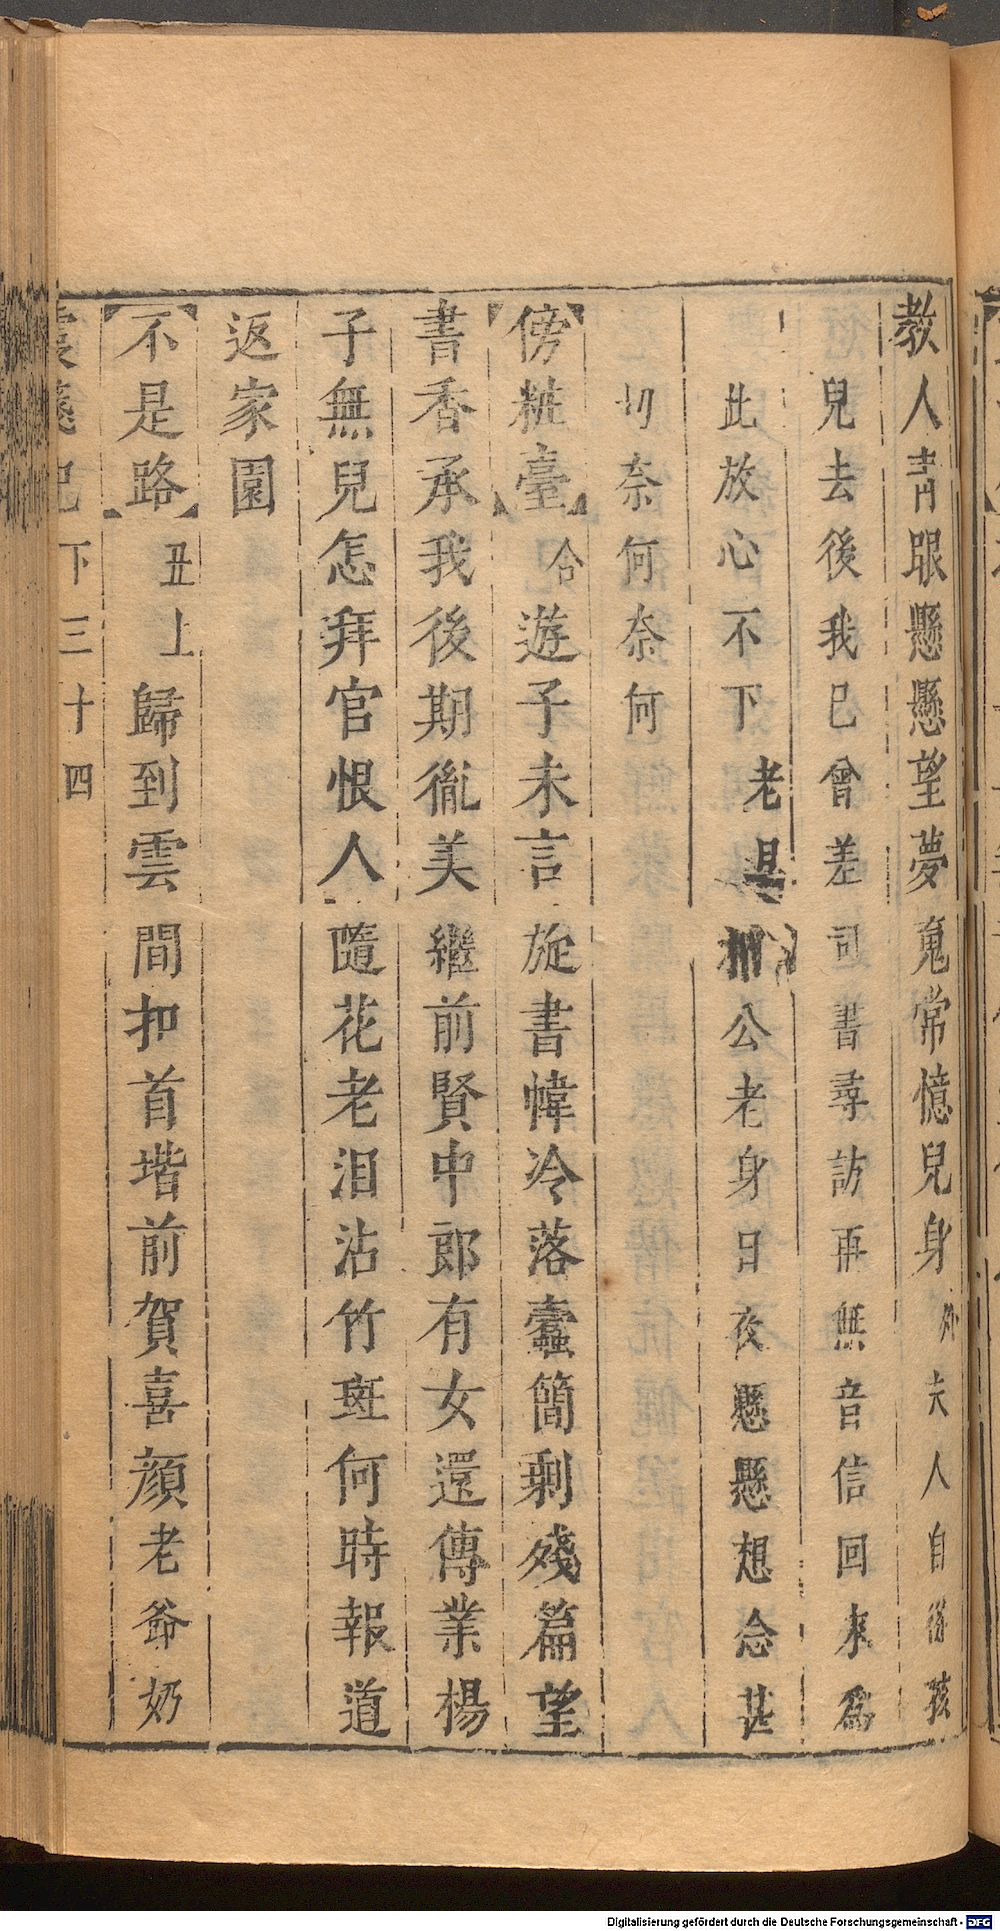 教人青眼懸懸望夢䰟常憶兒身外夫人自後孩
兒去後我已曾差司書尋訪再無音信回來爲
此放心不下老旦相公老身日夜懸懸想念甚
切奈何奈何
【傍粧臺】合遊子未言旋書幃冷落蠹簡剩殘篇望
書香承我後期胤美繼前賢中郎有女還傳業楊
子無兒怎拜官恨人隨花老泪沾竹斑何時報道
返家園
【不是路】丑上歸到雲間扣首堦前賀喜顔老爺奶
下三十四
Digitalisierung gefördert durch die Deutsche Forschungsgemeinschaft - DFG